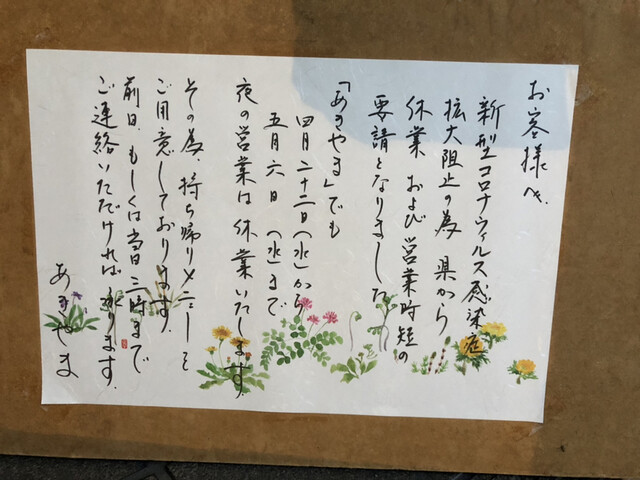 お客様へ
新型コロナウィルス感染症
拡大阻止の為 県から
休業 および営業時短の
要請となりました
「あきやま」でも
四月二十二日(水)から
五月六日(水)まで
夜の営業は休業いたします.
その為、持ち帰りメニューを
ご用意しております.
前日、もしくは当日三時まで
ご連絡いただければ承ります.
あきやま